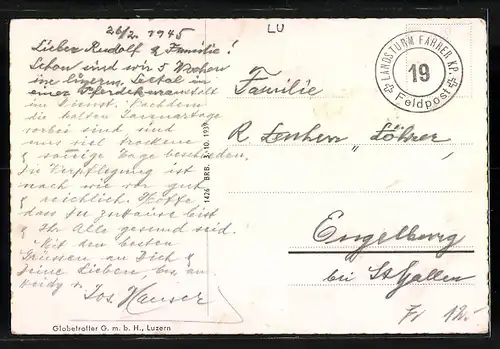 26/2. 1945
Lieber Rudolf & Familie!
Schon sind wir 5 Wochen
im Luzern. Seetal in
einer Pferdekuranstalt
im Dienst. Nachdem
die kalten Januartage
vorbei sind, sind
uns viel trockene
& sonnige Tage beschieden.
Die Verpflegung ist
nach wie vor gut
& reichlich. Hoffe
dass Du zuhause bist
& Ihr Alle gesund seid.
Mit den besten
Grüssen an Dich &
Deine Lieben, bes. an
Heidy
Jos. Hauser
Globetrotter G. m. b. H., Luzern
1426 BRB. 3. 10. 1939
LU
LANDSTURM FAHRER KP.
19
Feldpost
Familie
R
Engelburg
bei St Gallen
Fr 12.-